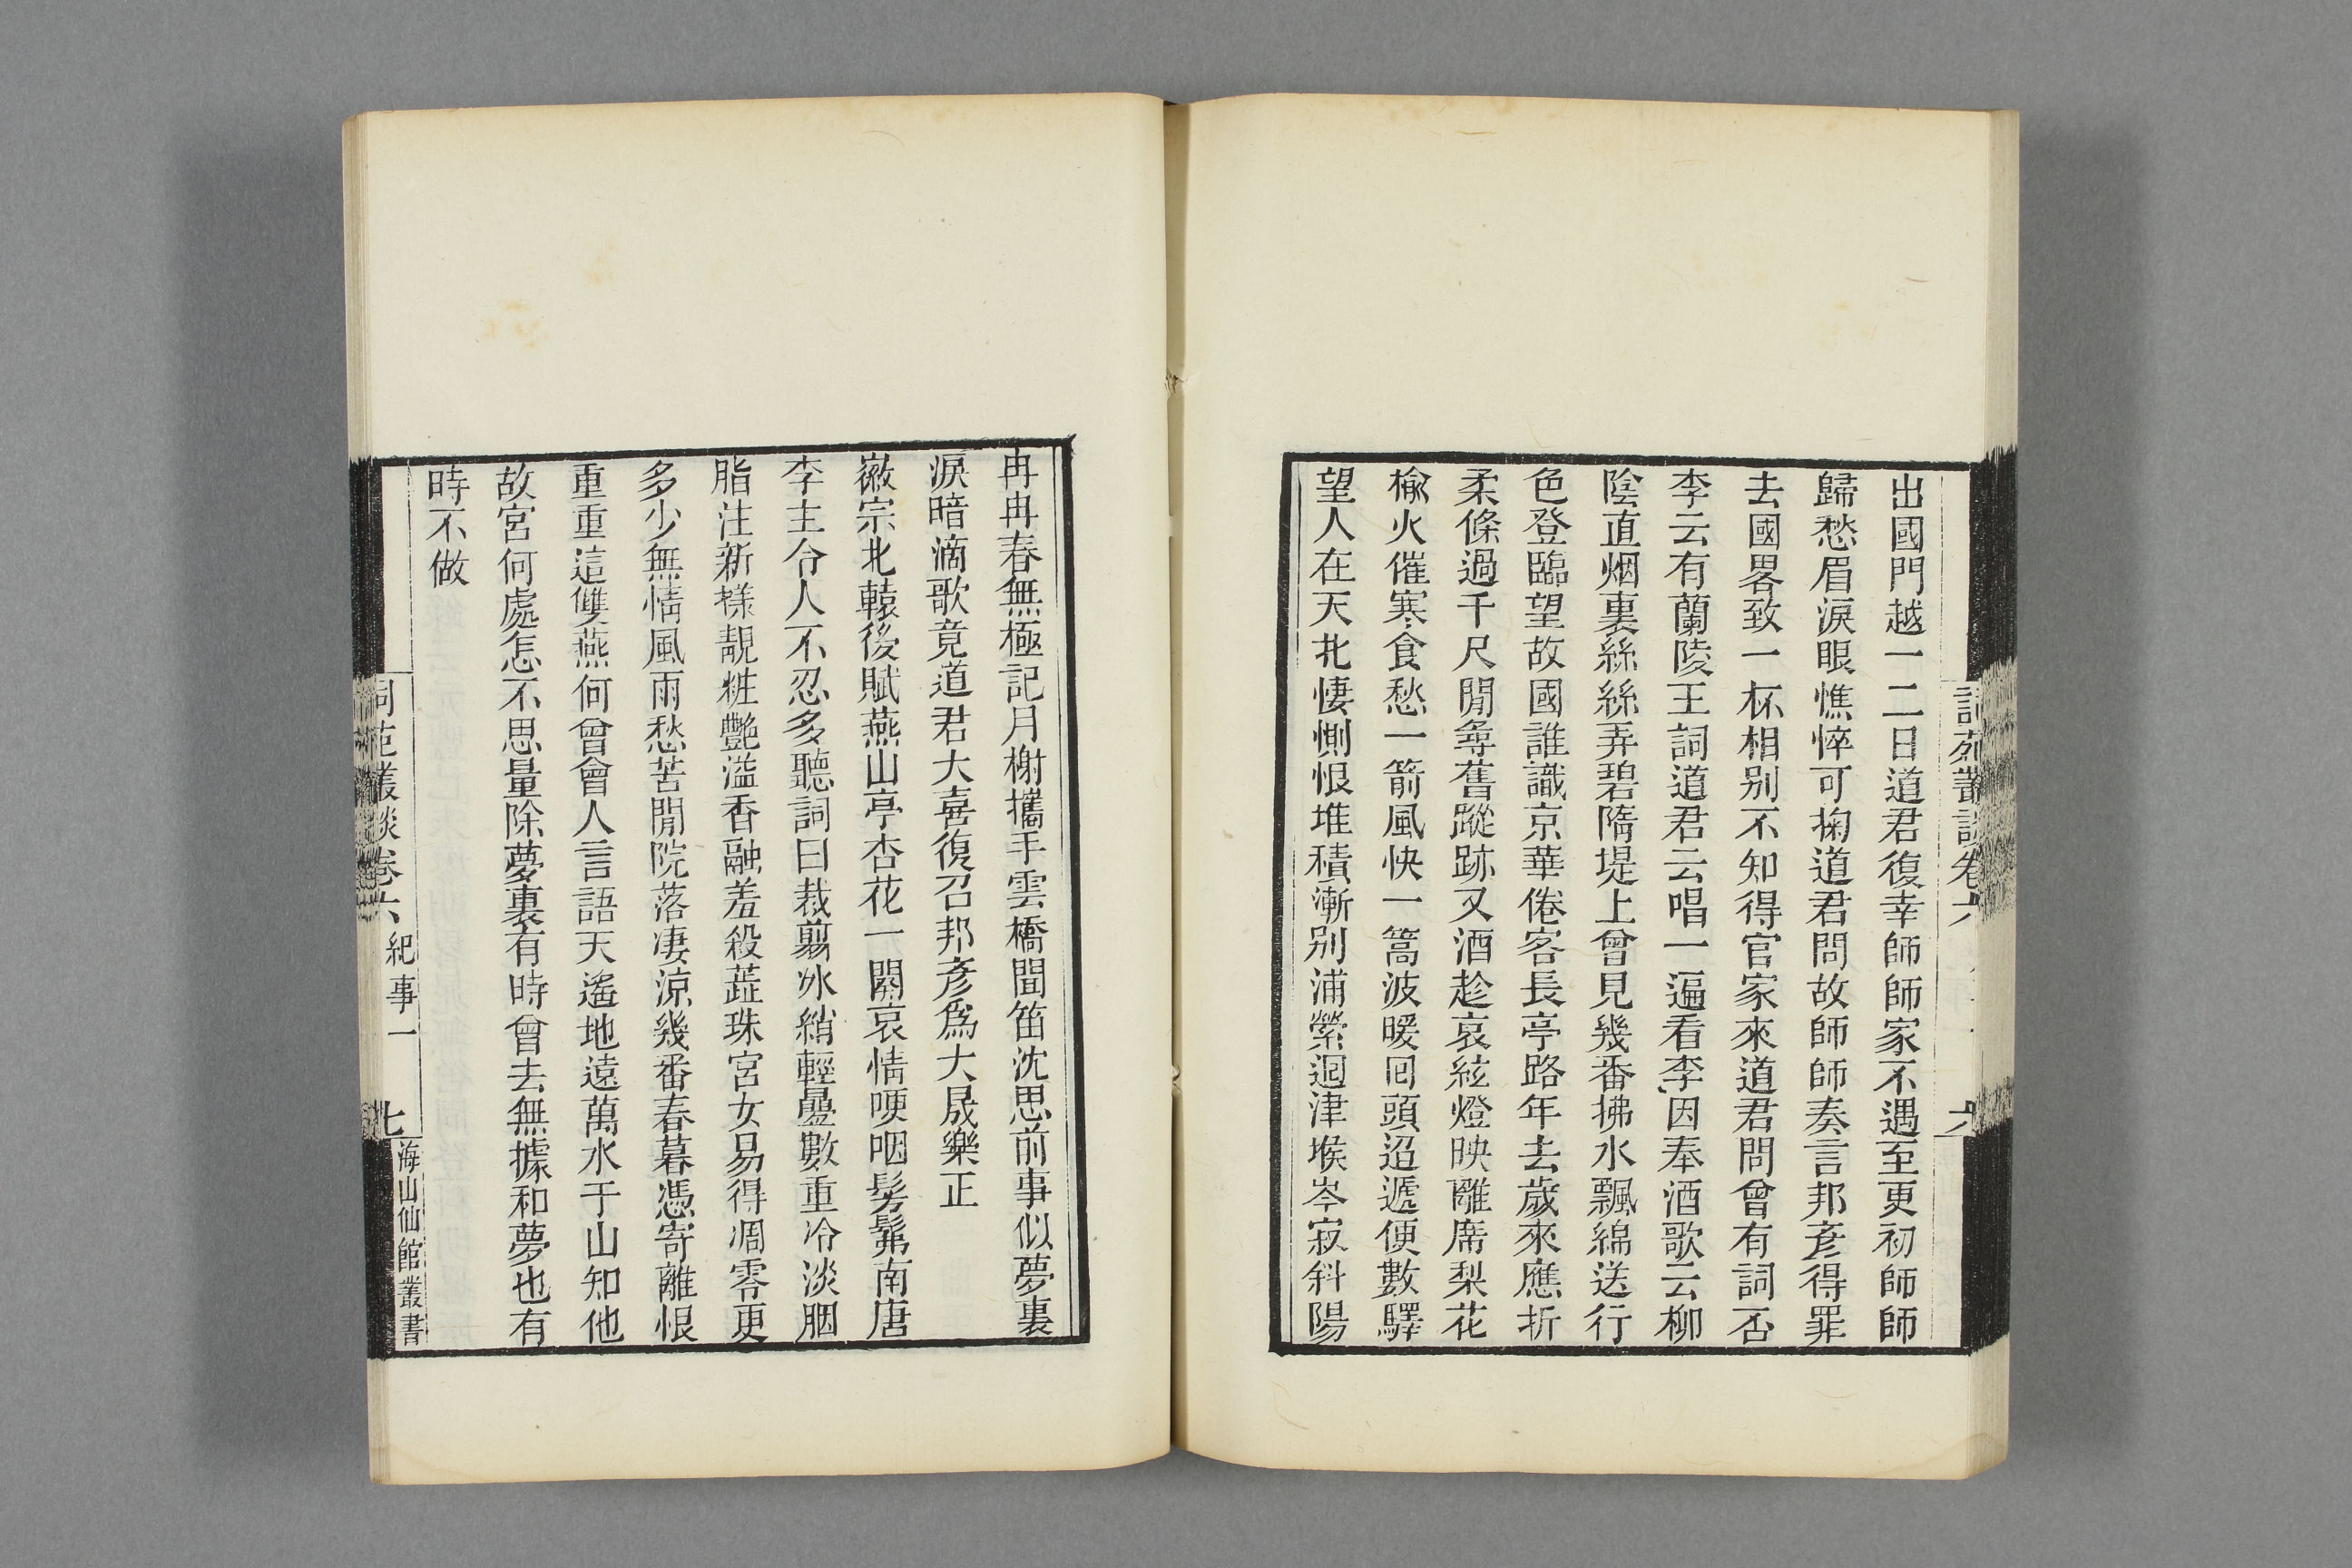 出國門越一二日道君復幸師師家不遇至更初師師
歸愁眉淚眼憔悴可掬道君問故師師奏言邦彥得罪
去國畧致一杯相别不知得官家來道君問曾有詞否
李云有蘭陵王詞道君云唱一遍看李因奉酒歌云柳
陰直烟裏絲絲弄碧隋堤上曾見幾番拂水飄綿送行
色登臨望故國誰識京華倦客長亭路年去歲來應折
柔條過千尺閒尋舊蹤跡又酒趁哀絃燈映離席梨花
榆火催寒食愁一箭風快一篙波暖囘頭迢遞便數驛
望人在天北悽惻恨堆積漸别浦縈迴津堠岑寂斜陽
詞苑叢談卷六
六
冉冉春無極記月榭攜手雲橋聞笛沈思前事似夢裏
淚暗滴歌竟道君大喜復召邦彥爲大晟樂正
徽宗北轅後賦燕山亭杏花一闋哀情哽咽髣髴南唐
李主令人不忍多聽詞曰裁翦冰綃輕疊數重冷淡胭
脂注新樣靚粧艷溢香融羞殺蕋珠宮女易得凋零更
多少無情風雨愁苦閒院落凄涼幾番春暮憑寄離恨
重重這雙燕何曾會人言語天遙地遠萬水千山知他
故宮何處怎不思量除夢裏有時曾去無據和夢也有
時不做
詞苑叢談卷六 紀事一
七
海山仙館叢書